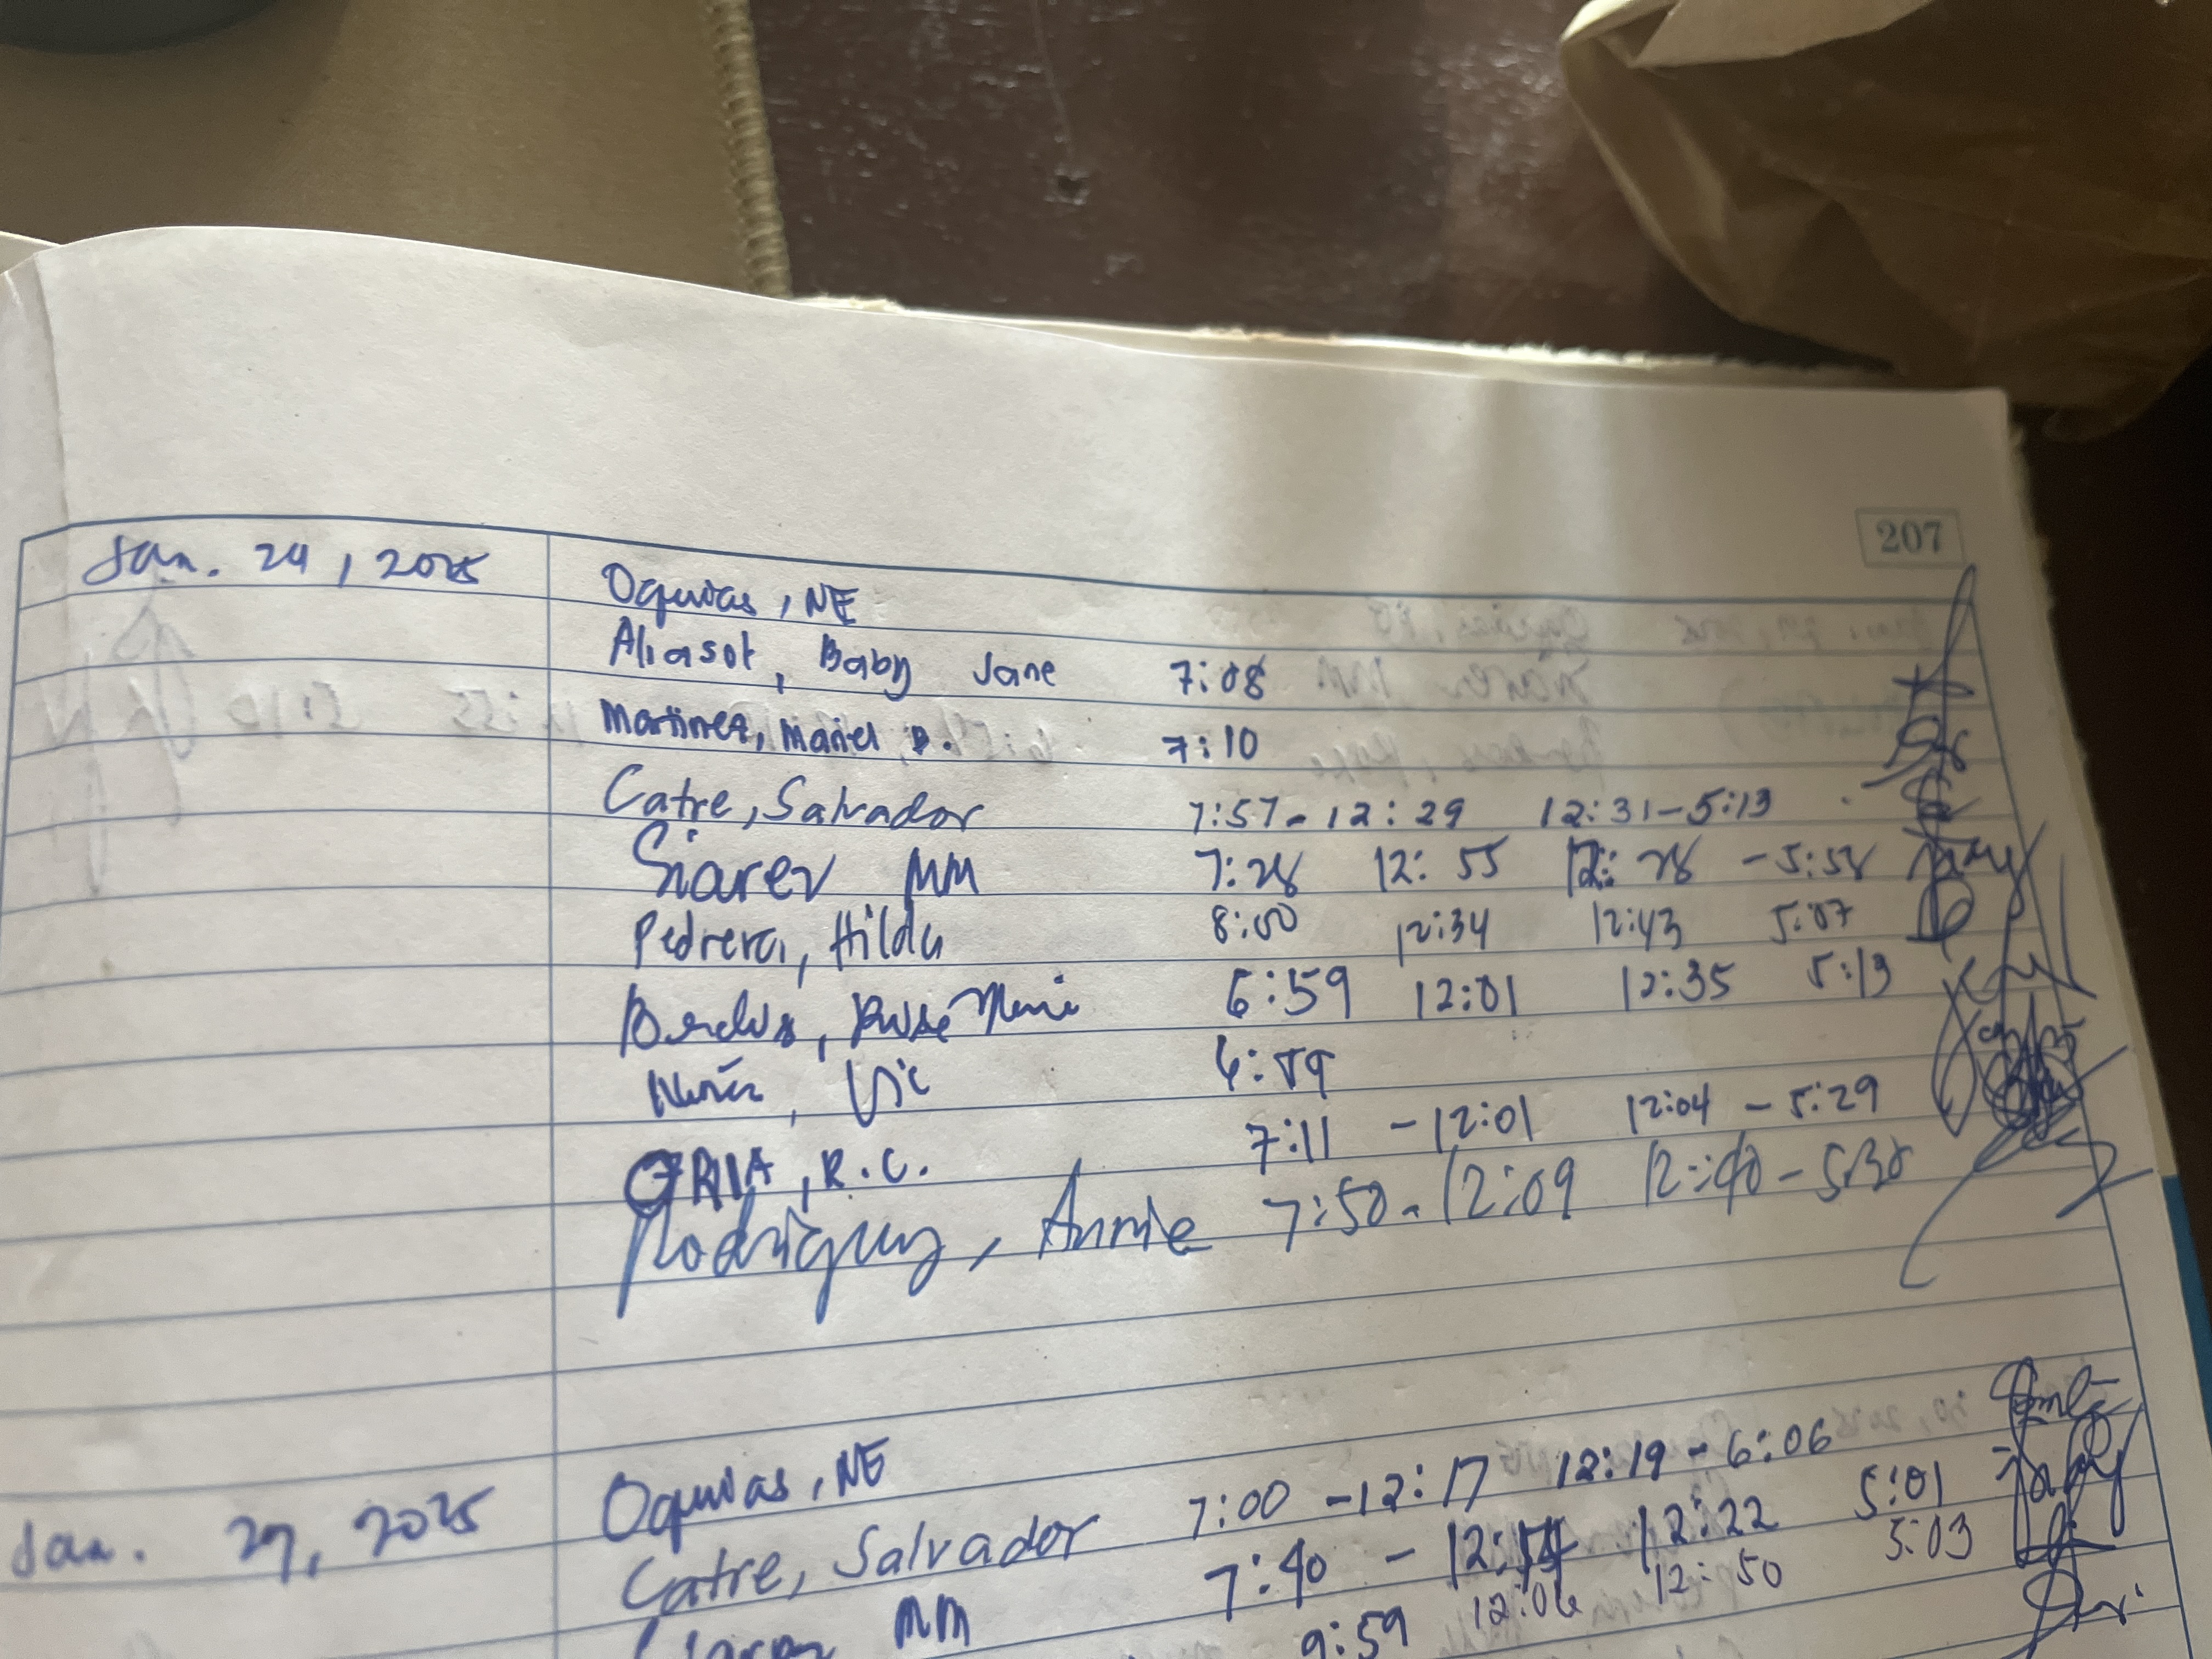 207
Jan. 24, 2025 Oquias, NE
Aliasot, Baby Jane 7:08
Martinez, Mariel D. 7:10
Catre, Salvador 7:57 - 12:29 12:31 - 5:13
Siarez MM 7:28 12:55 - 5:58
Pedrera, Hilda 8:00 12:34 12:43 5:07
Rose Marie 6:59 12:01 12:35 5:13
Vic 6:59
ORIA, R.C. 7:11 - 12:01 12:04 - 5:29
Rodriguez, Annie 7:50 - 12:09 12:40 - 5:30
Jan. 27, 2025 Oquias, NE
Catre, Salvador 7:00 - 12:17 12:19 - 6:06
MM 7:40 - 12:22 5:01
9:59 12:06 12:50 5:03